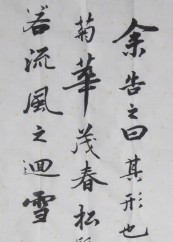 余告之曰其形也
菊華茂春松
若流風之迴雪